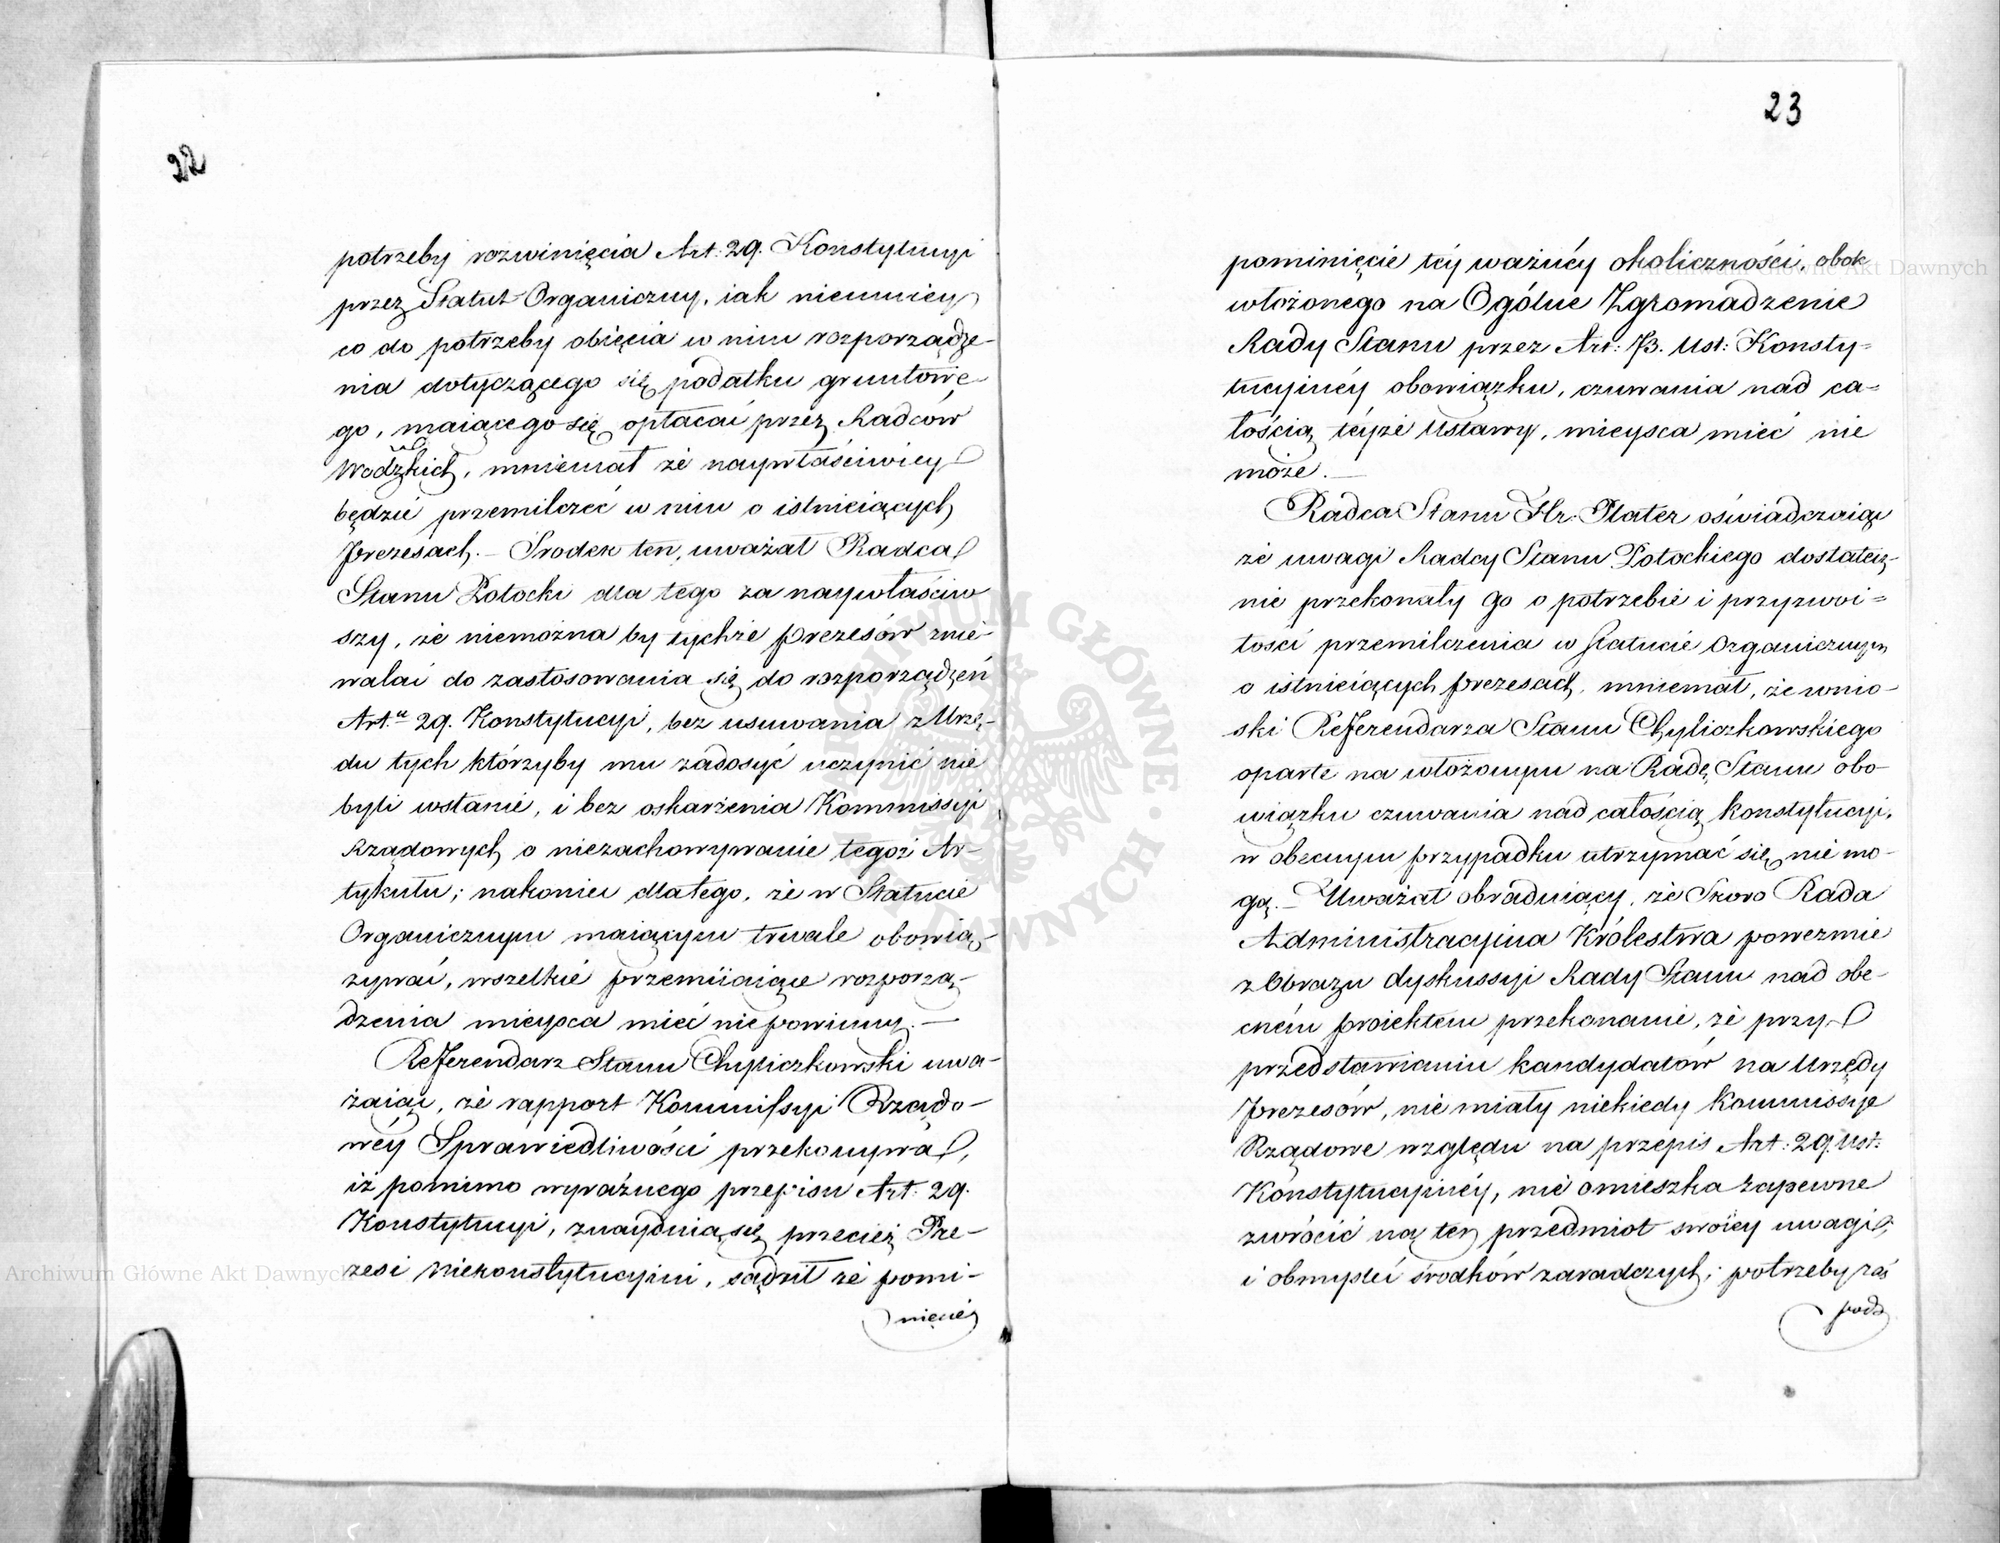 22
potrzeby rozwinięcia Art: 29. Konstytucyi
przez Statut Organiczny, iak niemniey
co do potrzeby obięcia w nim rozporządze-
nia dotyczącego się podatku gruntowe-
go, maiącego się opłacać przez Radców
Wodzkich, mniemał że naywłaściwiey
będzie przemilczeć w nim o istnieiących
Prezesach. – Srodek ten, uważał Radca
Stanu Potocki dla tego za naywłaściw
szy, że niemożna by tychże prezesów znie-
walać do zastosowania się do rozporządzeń
Art.u 29. Konstytucyi, bez usuwania z Urzę-
du tych którzyby mu zadosyć uczynić nie
byli wstanie, i bez oskarżenia Kommissyi
Rządowych o niezachowywanie tegoż Ar-
tykułu; nakoniec dlatego, że w Statucie
Organicznym maiącym trwale obowią-
zywać, wszelkie przemiiaiące rozporzą-
dzenia mieysca mieć nie powinny. –
Referendarz Stanu Chyliczkowski uwa-
żaiąc, że rapport Kommissyi Rządo-
wéy Sprawiedliwości przekonywa,
iż pomimo wyraźnego przepisu Art: 29.
Konstytucyi, znayduią się przecież Pre-
zesi niekonstytucyini, sądził że pomi-
nięcie
23
pominięcie téy ważnéy okoliczności, obok
włożonego na Ogólne Zgromadzenie
Rady Stanu przez Art: 73. Ust: Konsty=
tucyinéy obowiązku, czuwania nad ca=
łością téyże Ustawy, mieysca mieć nie
może. –
Radca Stanu Hr. Plater oświadczaiąc
że uwagi Radcy Stanu Potockiego dostatecz-
nie przekonały go o potrzebie i przyzwoi=
tości przemilczenia w Statucie Organicznym
o istnieiących prezesach, mniemał, że wnio-
ski Referendarza Stanu Chyliczkowskiego
oparte na włożonym na Radę Stanu obo-
wiązku czuwania nad całością konstytucyi,
w obecnym przypadku utrzymać się nie mo-
gą. – Uważał obraduiący, że Skoro Rada
Administracyina Królestwa poweźmie
z Obrazu dyskussyi Rady Stanu nad obe-
cném proiektem przekonanie, że przy
przedstawianiu kandydatów na Urzędy
Prezesów, nie miały niekiedy Kommissye
Rządowe względu na przepis Art: 29. Ust:
Konstytucyinéy, nie omieszka zapewne
zwrócić na ten przedmiot swoiey uwagi,
i obmyśleć środków zaradczych; potrzeby zaś
podz
ARCHIWUM GŁÓWNE AKT DAWNYCH
Archiwum Główne Akt Dawnych
Archiwum Główne Akt Dawnych